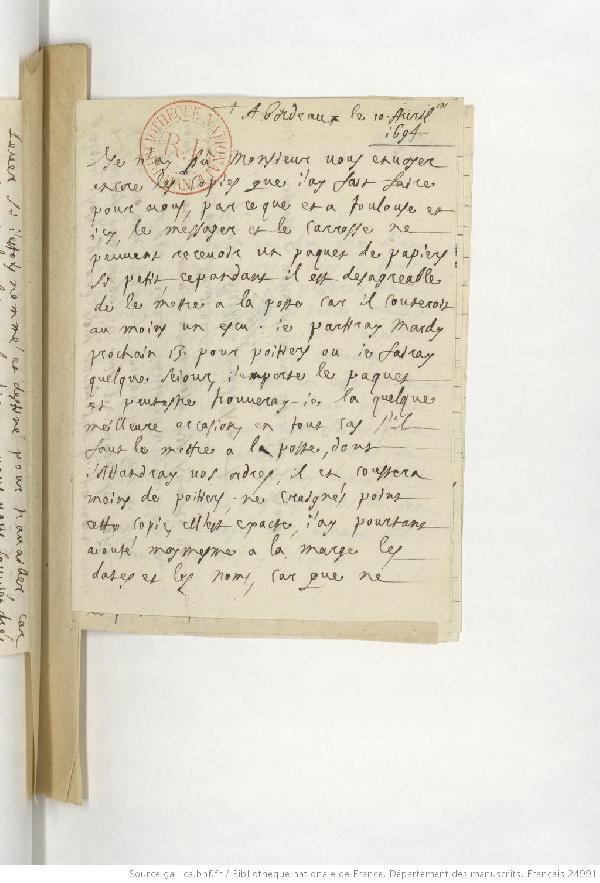 A Bordeaux le 10. Avril
1694
Je n'ay pû Monsieur vous envoyer
encore les copies que j'ay fait faire
pour vous, par ce que et a Toulouse et
icy, le messager et le carrosse ne
peuvent recevoir un paquet de papiers
si petit, cependant il est desagreable
de le mettre a la poste car il couteroit
au moins un escu. ie partiray Mardy
prochain 13. pour poitiers ou ie feray
quelque seiour, i'emporte le paquet
et peutestre trouveray-ie la quelque
meilleure occasion, en tout cas s'il
faut le mettre a la poste, dont
i'attendray vos ordres, il en coustera
moins de poitiers. ne craignés point
cette copie, elle est exacte, i'ay pourtant
aiouté moymesme a la marge les
dates et les noms, car que ne
nommé et destiné pour travailler, car
BIBLIOTHEQUE NATIONALE
Source gallica.bnf.fr / Bibliothèque nationale de France. Département des manuscrits. Français 24991